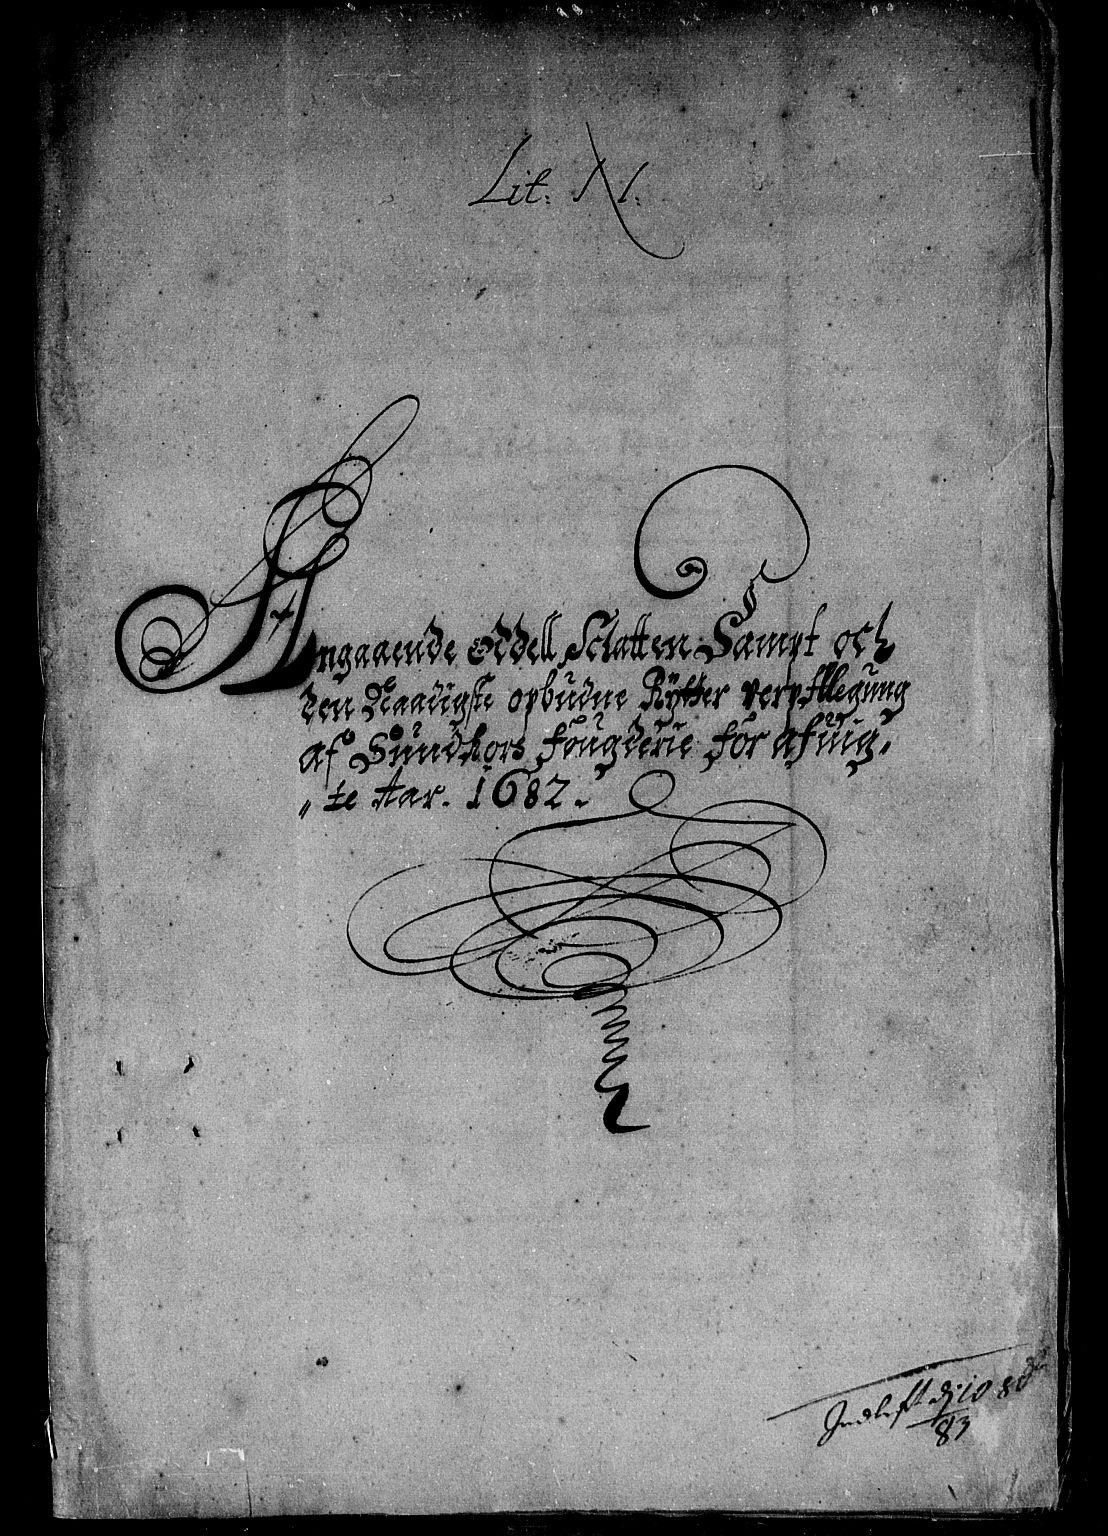 Lit: N:
Angaaende Oddell Schatten Sampt och
den Naadigste opbudne Rytter verpflegung
af Sundhors fougderie for afuig,
„te Aar. 1682.
Indleft d: 10
83